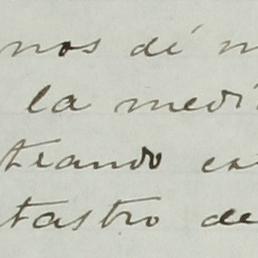 nos dé
la medi
trando
tastro de